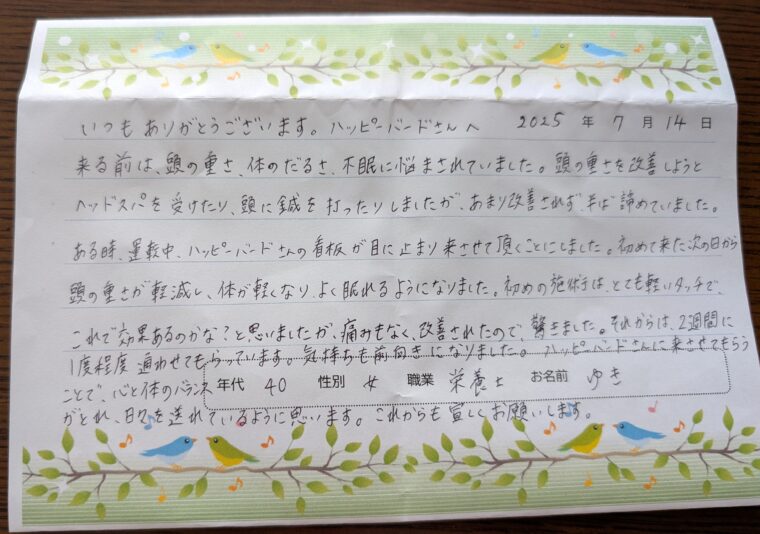 いつもありがとうございます。ハッピーバードさんへ 2025年7月14日
来る前は、頭の重さ、体のだるさ、不眠に悩まされていました。頭の重さを改善しようと
ヘッドスパを受けたり、頭に鍼を打ったりしましたが、あまり改善されず、半ば諦めていました。
ある時、運転中、ハッピーバードさんの看板が目に止まり来させて頂くことにしました。初めて来た次の日から
頭の重さが軽減し、体が軽くなり、よく眠れるようになりました。初めの施術は、とても軽いタッチで、
これで効果あるのかな?と思いましたが、痛みもなく、改善されたので、驚きました。それからは、2週間に
1度程度通わせてもらっています。気持ちも前向きになりました。ハッピーバードさんに来させてもらう
ことで、心と体のバランス
年代 40 性別 女 職業 栄養士 お名前 ゆき
がとれ、日々を送れているように思います。これからも宜しくお願いします。